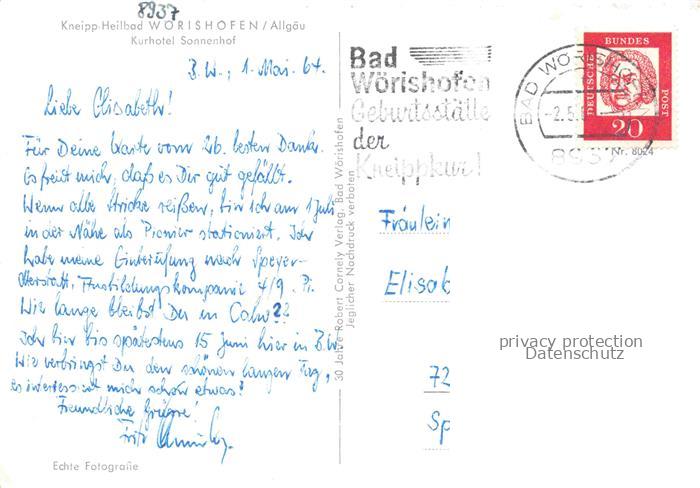 8937
Kneipp-Heilbad WÖRISHOFEN / Allgäu
Kurhotel Sonnenhof
B.W., 1. Mai. 64.
Liebe Elisabeth!
Für Deine Karte vom 26. besten Dank.
Es freut mich, daß es Dir gut gefällt.
Wenn alle Stricke reißen, bin ich am 1 Juli
in der Nähe als Pionier stationiert. Ich
habe meine Einberufung nach Speyer-
Otterstatt, Ausbildungskompanie 4/9. Pi.
Wie lange bleibst Du in Calw??
Ich bin bis spätestens 15 Juni hier in B.W.
Wie verbringst Du den schönen langen Tag,
es interessiert mich schon etwas!
Freundliche Grüße!
Fritz
Echte Fotografie
30 Jahre Robert Cornely Verlag, Bad Wörishofen
Jeglicher Nachdruck verboten
Bad
Wörishofen
Geburtsstätte
der
Kneippkur!
BAD WÖRISH
-2.5.6
8937
DEUTSCHE BUNDES POST
20
Nr. 8024
Fräulein
Elisab
72
Sp
privacy protection
Datenschutz